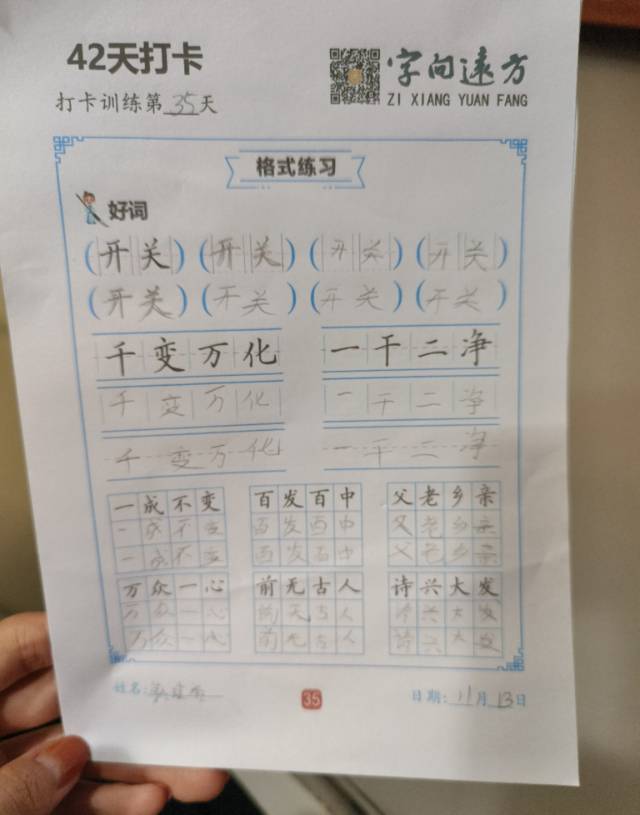 42天打卡
字向遠方
ZI XIANG YUAN FANG
打卡训练第35天
格式练习
好词
(开关) (开关) (开关) (开关)
(开关) (开关) (开关) (开关)
千变万化 一干二净
千变万化 一干二净
千变万化 一干二净
一成不变 百发百中 父老乡亲
一成不变 百发百中 父老乡亲
一成不变 百发百中 父老乡亲
万众一心 前无古人 诗兴大发
万众一心 前无古人 诗兴大发
万众一心 前无古人 诗兴大发
姓名: 35 日期:11月13日